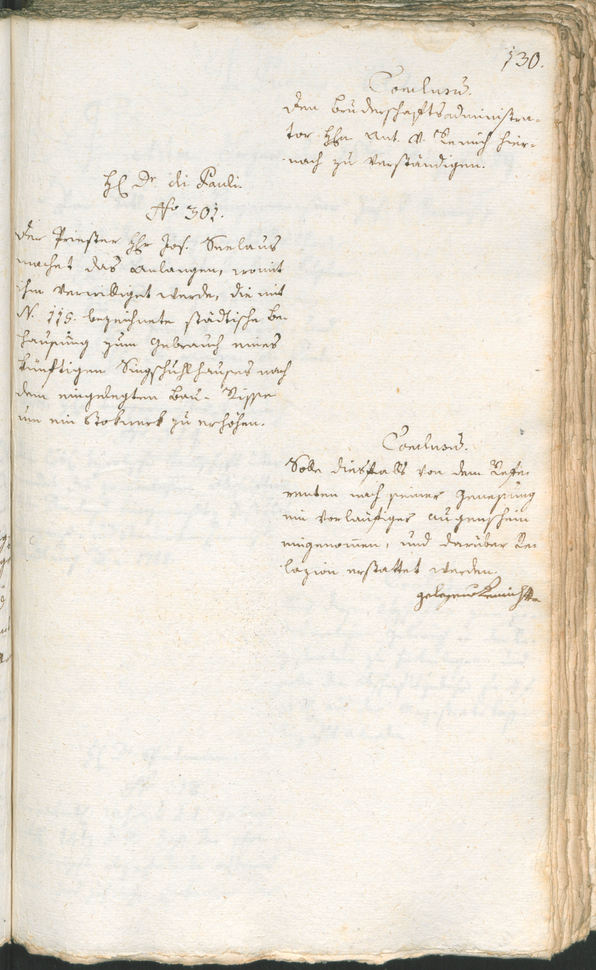 130.
Conclusum.
Dem Bruderschaftsadministra-
tor Hhn Ant. v. Remich hier-
nach zu verständigen.
H Dr. di Pauli.
No 301.
Der Priester Hhr Jos. Seelaus
machet das Anlangen, womit
ihm verwilliget werde, die mit
N. 115 bezeichnete städtische Be-
hausung zum Gebrauch eines
künftigen Singschuhlhauses nach
dem eingelegten Bau-Rippe
um ein Stokwerk zu erhöhen.
Conclusum.
Solle diesfalls von dem Refe-
renten nach seiner Genesung
ein vorläufiger Augenschein
eingenommen, und darüber Re-
lazion erstattet werden.
gelesen